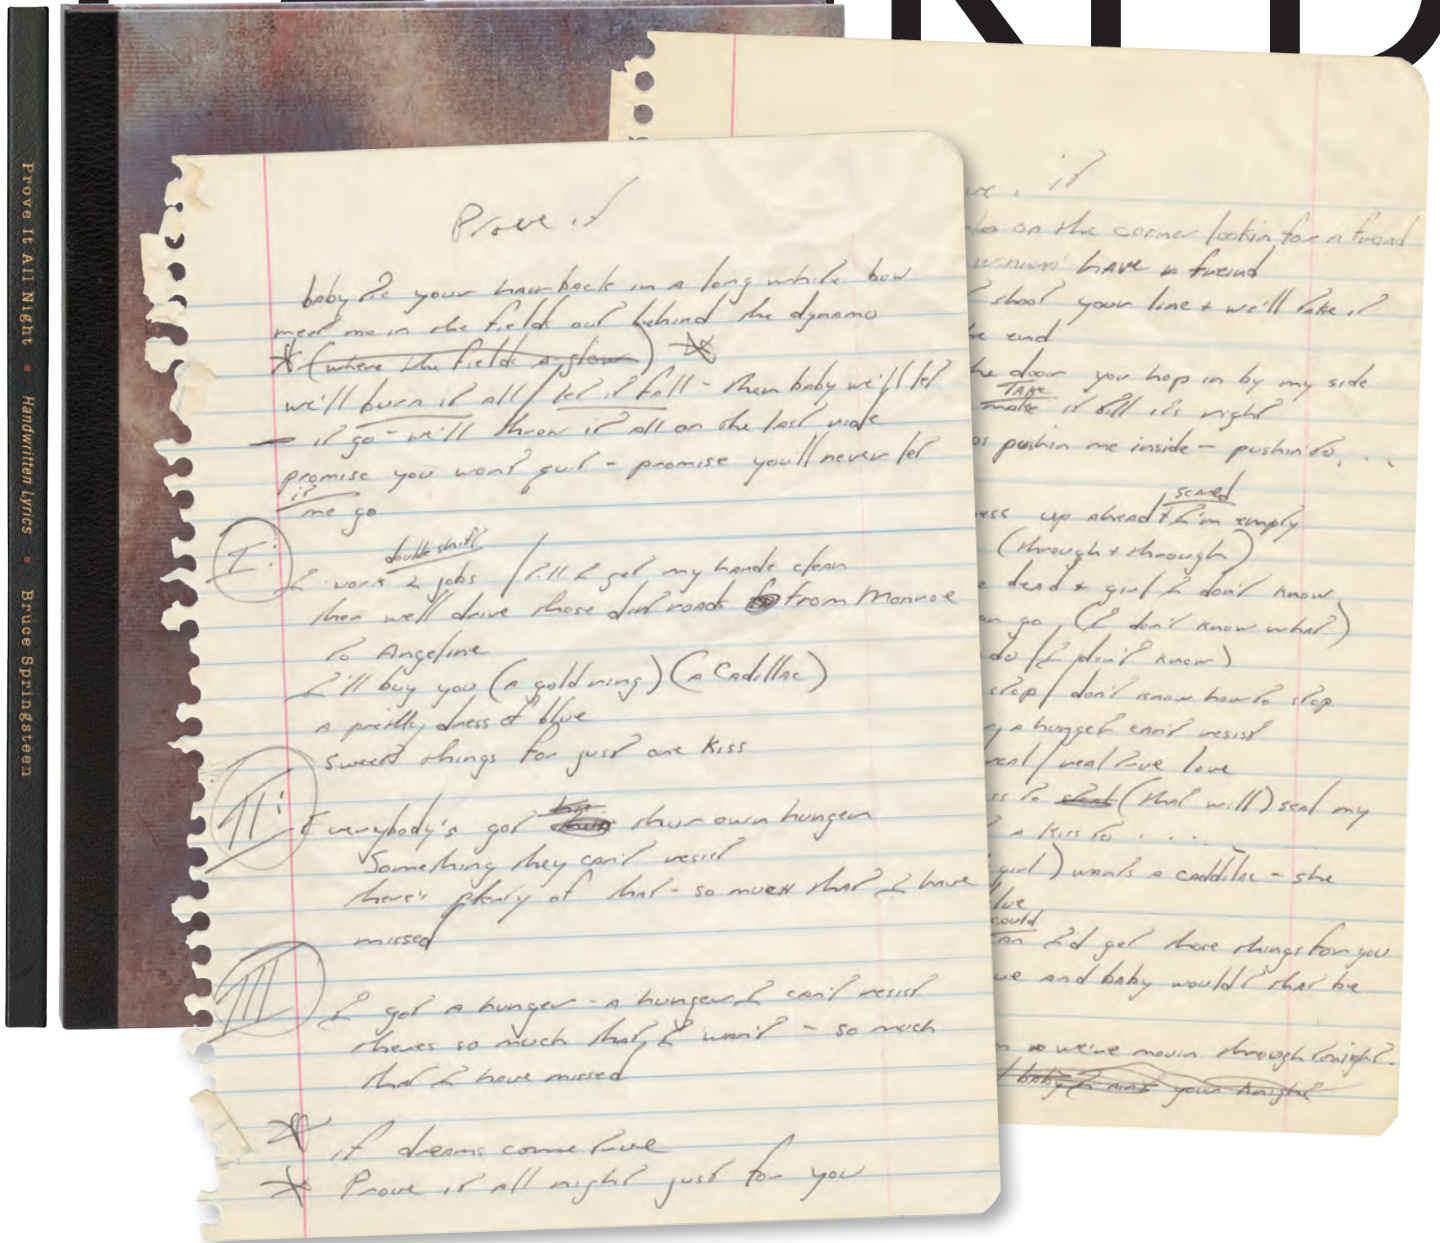 Prove It All Night • Handwritten Lyrics • Bruce Springsteen
Prove it
baby tie your hair back in a long white bow
meet me in the field out behind the dynamo
* (where the fields a-glow) *
we'll burn it all / let it fall - then baby we'll let
- it go - we'll throw it all on the last ride
promise you wont quit - promise you'll never let
it
me go
I:
double shift
I work 2 jobs / till I get my hands clean
then we'll drive those dirt roads from Monroe
to Angeline
I'll buy you (a gold ring) (a Cadillac)
a pretty dress of blue
sweet things for just one kiss
II:
Everybody's got their own hunger
Something they can't resist
there's plenty of that - so much that I have
missed
III
I got a hunger - a hunger I can't resist
theres so much that I want - so much
that I have missed
* if dreams come true
* Prove it all night just for you
it
on the corner lookin for a freind
have a freind
shoot your line + we'll take it
end
door you hop in by my side
TAKE
make it till its right
pushin me inside - pushin to ...
scared
up ahead + I'm empty
(through + through)
dead + girl I don't know
go, (I don't know what)
do / I don't know)
stop / don't know how to stop
a hunger can't resist
real / real true love
to (that will) seal my
a kiss to ...
girl) wants a caddilac - she
could
I'd get those things for you
and baby would that be
we've movin through tonight
baby I aint your knight